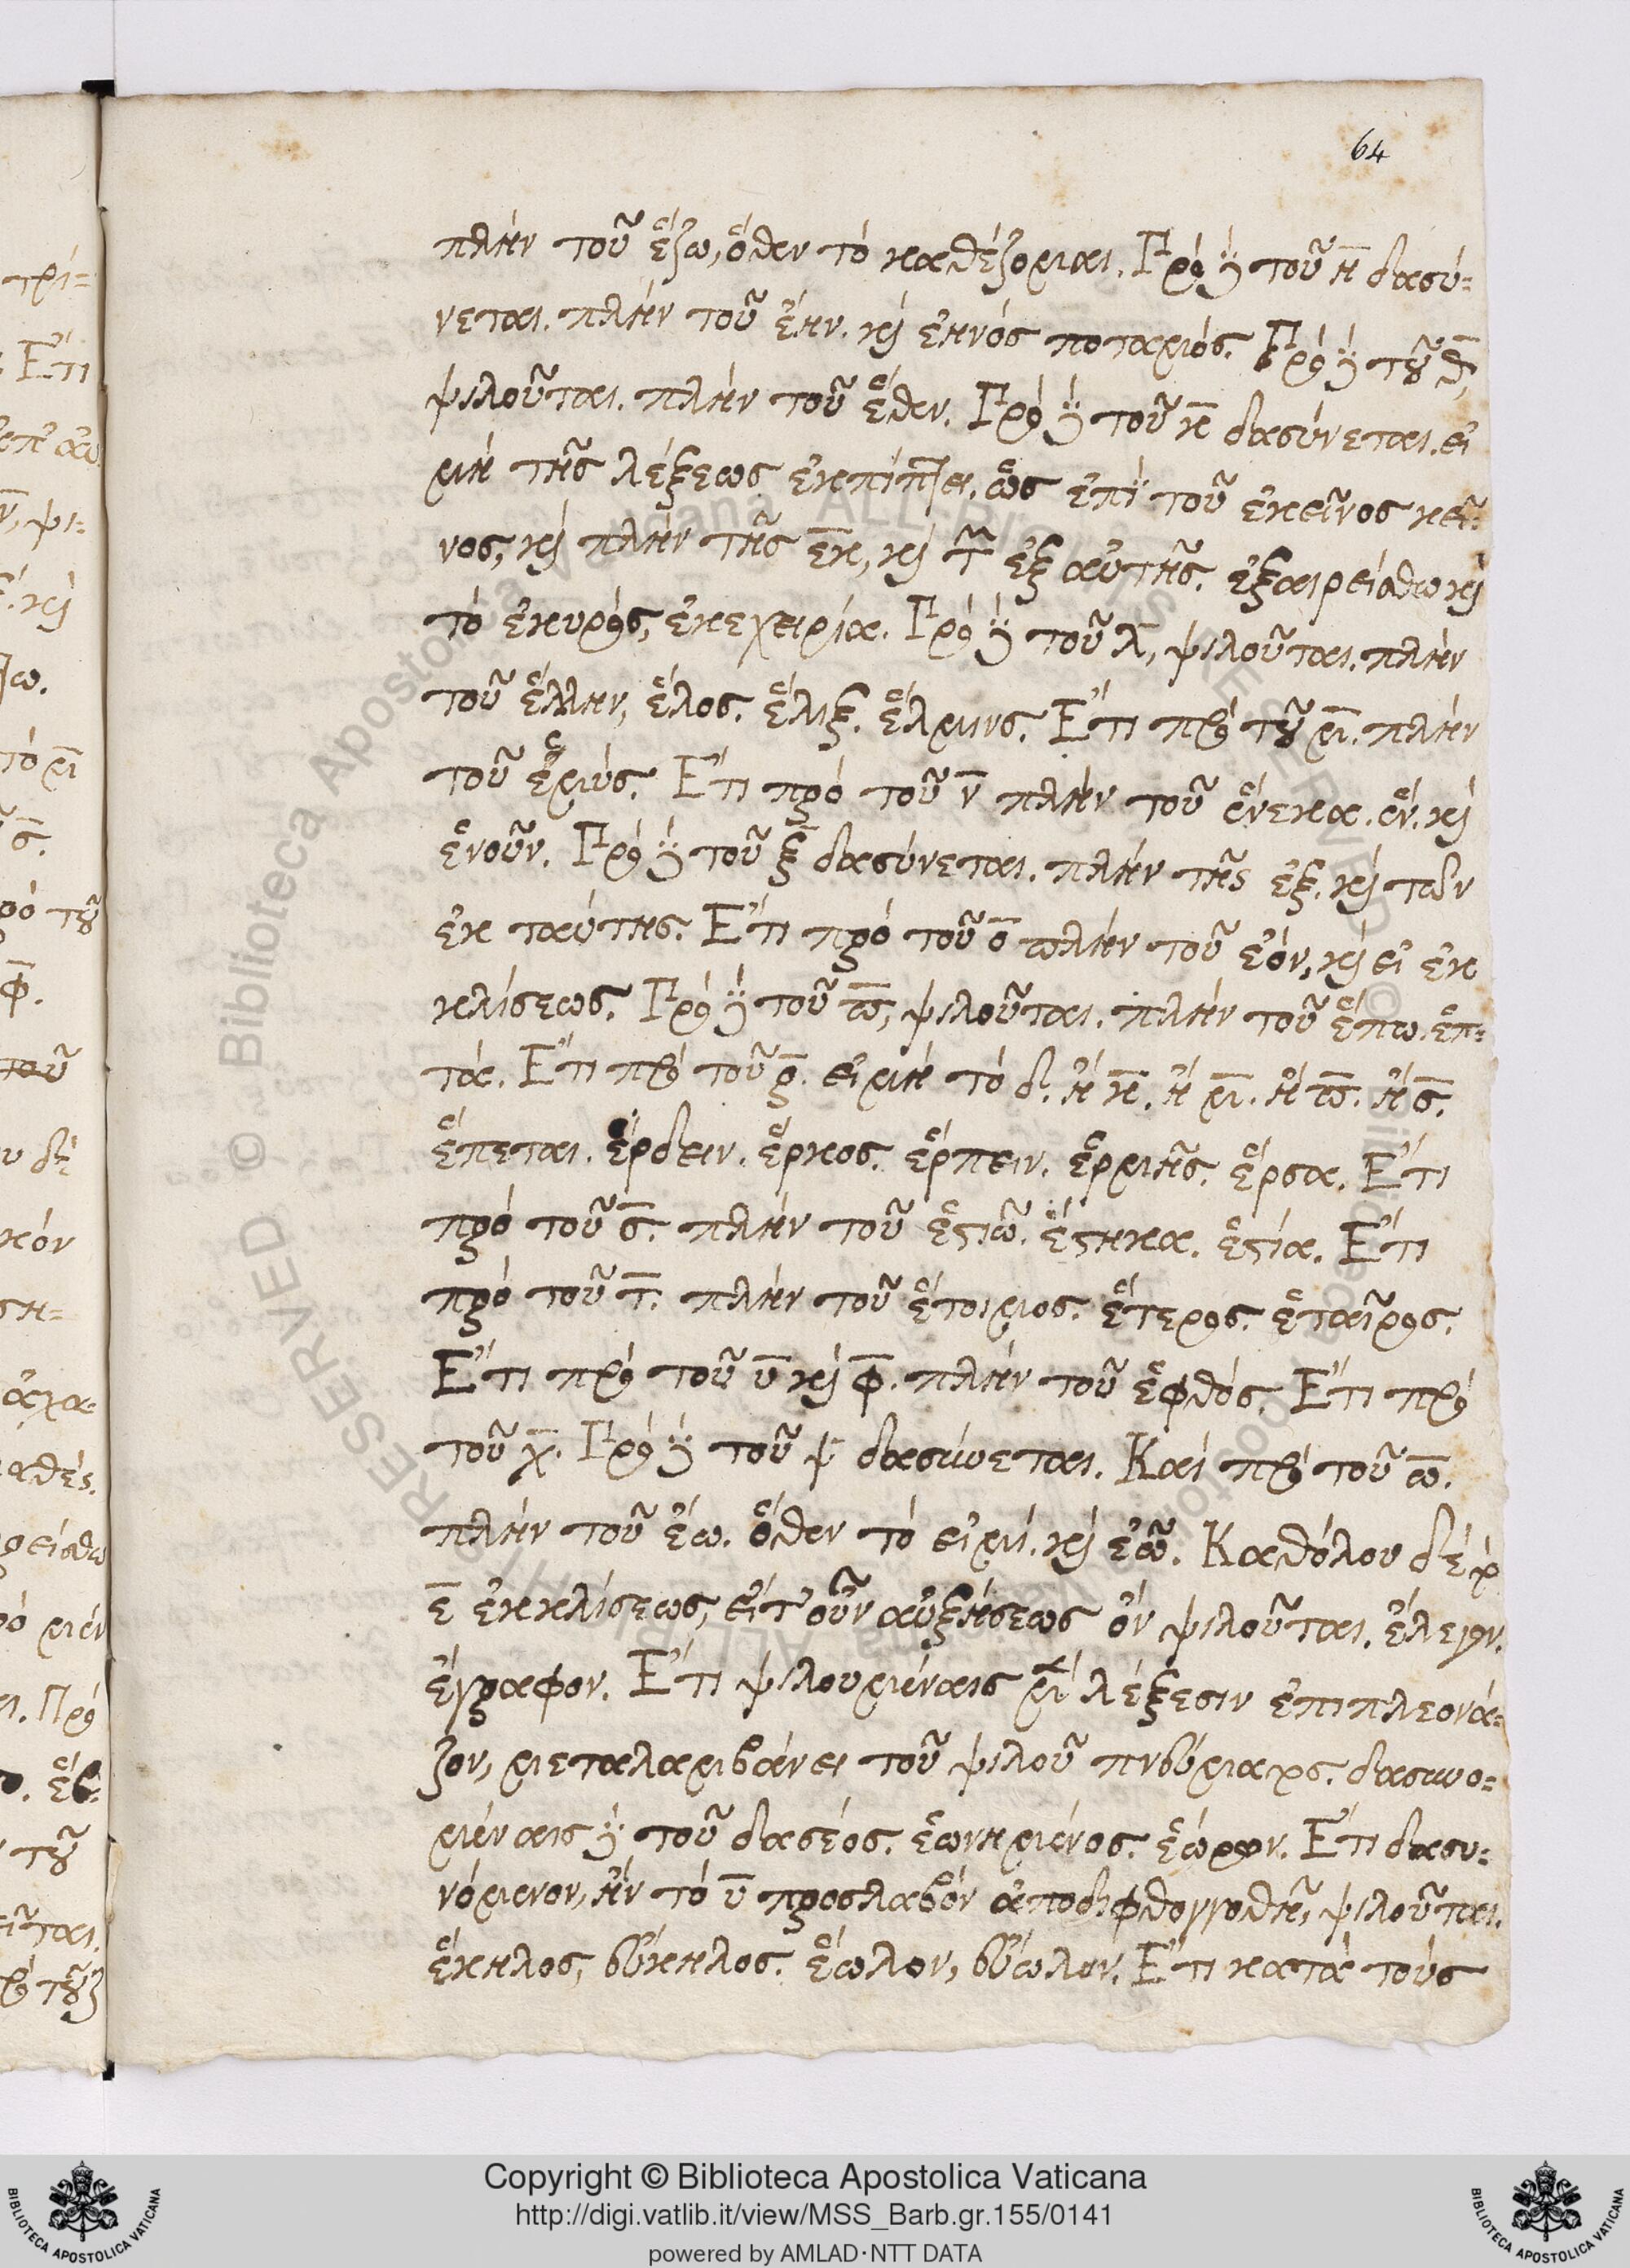 64
πλὴν τοῦ ἕζω, ὅθεν τὸ καθέζομαι. Πρὸ δὲ τοῦ η̄ δασύ-
νεται. πλὴν τοῦ ἐήν. καὶ ἐηνός ποταμός. Πρὸ δὲ τοῦ θ̄,
ψιλοῦται. πλὴν τοῦ ἕθεν. Πρὸ δὲ τοῦ κ̄ δασύνεται. εἰ
μὴ τῆς λέξεως ἐκπίπτει. ὡς ἐπὶ τοῦ ἐκεῖνος κεῖ-
νος, καὶ πλὴν τῆς ε̄κ̄, καὶ τ ἐξ αὐτῆς. ἐξαιρείσθω καὶ
τὸ ἐκυρός, ἐκεχειρία. Πρὸ δὲ τοῦ λ̄, ψιλοῦται. πλὴν
τοῦ ἕλλην, ἕλος. ἕλιξ. ἕλμινς. Ἔτι πρὸ τοῦ μ̄. πλὴν
τοῦ ἑρμῆς. Ἔτι πρὸ τοῦ ν̄ πλὴν τοῦ ἕνεκα. ἕν. καὶ
ἑνοῦν. Πρὸ δὲ τοῦ ξ̄ δασύνεται. πλὴν τῆς ἐξ. καὶ τῶν
ἐκ ταύτης. Ἔτι πρὸ τοῦ ο̄ πλὴν τοῦ ἐόν, καὶ εἰ ἐκ
κλίσεως. Πρὸ δὲ τοῦ π̄, ψιλοῦται. πλὴν τοῦ ἕπω. ἑπ-
τά. Ἔτι πρὸ τοῦ ρ̄. εἰ μὴ τὸ δ̄. ἢ κ̄. ἢ μ̄. ἢ π̄. ἢ σ̄.
ἕπεται. ἕρδειν. ἕρκος. ἕρπειν. ἑρμῆς. ἕρσα. Ἔτι
πρὸ τοῦ σ̄. πλὴν τοῦ ἑστιῶ. ἕστηκα. ἑστία. Ἔτι
πρὸ τοῦ τ̄. πλὴν τοῦ ἕτοιμος. ἕτερος. ἑταῖρος.
Ἔτι πρὸ τοῦ ῡ καὶ φ̄. πλὴν τοῦ ἑφθός. Ἔτι πρὸ
τοῦ χ̄. Πρὸ δὲ τοῦ ψ̄ δασύνεται. Καὶ πρὸ τοῦ ω̄.
πλὴν τοῦ ἔω. ὅθεν τὸ εἰμί. καὶ ἐῶ. Καθόλου δὲ
ε̄ ἐκ κλίσεως, εἴτ οὖν αὐξήσεως ὂν ψιλοῦται. ἔλεγον.
ἔγραφον. Ἔτι ψιλουμέναις λέξεσιν ἐπιπλεονά-
ζον, μεταλαμβάνει τοῦ ψιλοῦ πνεύματος. δασυνο-
μέναις δὲ τοῦ δασέος. ἑωνημένος. ἑώρων. Ἔτι δασυ-
νόμενον, ἢν τὸ ῡ προσλαβὸν ἀποδιφθογγοθῆ, ψιλοῦται.
ἕκηλος, εὔκηλος. ἕωλον, εὔωλον. Ἔτι κατὰ τοὺς
Copyright © Biblioteca Apostolica Vaticana
http://digi.vatlib.it/view/MSS_Barb.gr.155/0141
powered by AMLAD·NTT DATA